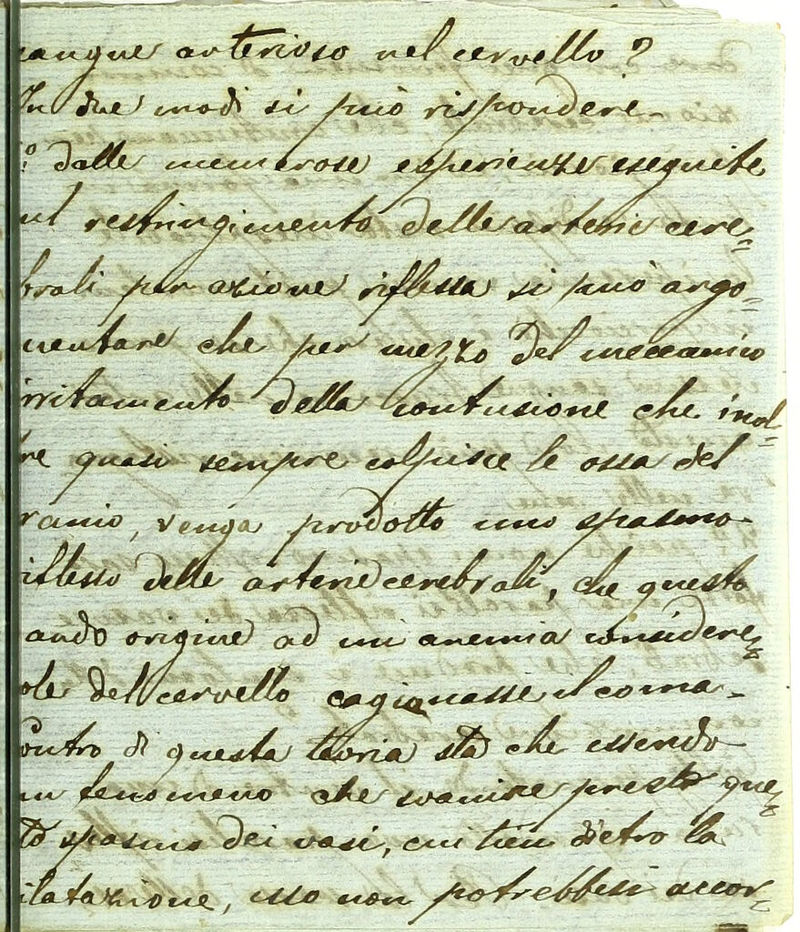 sangue arterioso nel cervello?
In due modi si può rispondere.
1.º dalle numerose esperienze eseguite
sul restringimento delle arterie cere=
brali per azione riflessa si può argo=
mentare che per mezzo del meccanico
irritamento della contusione che inol=
tre quasi sempre colpisce le ossa del
cranio, venga prodotto uno spasmo
riflesso delle arterie cerebrali, che questo
dando origine ad un'anemia considere=
vole del cervello cagionasse il coma.
Contro di questa teoria sta che essendo
un fenomeno che svanire presto que=
sto spasmo dei vasi, cui tien dietro la
dilatazione, esso non potrebbesi accor=